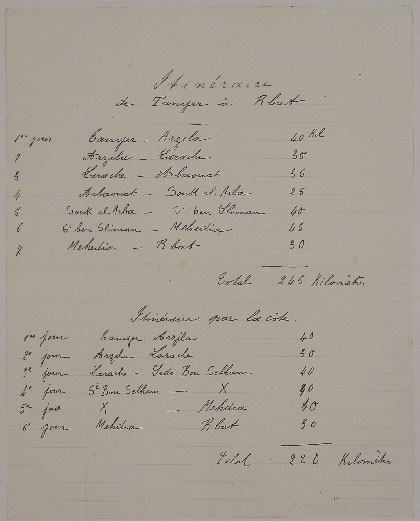 Itinéraire
de Tanger à Rbat
1er jour Tanger - Arzila 40 Kil
2 Arzila - Larache 30
3 Larache - Arbaouat 36
4 Arbaouat - Souk el Arba 25
5 Souk el Arba - Si ben Sliman 40
6 Si ben Sliman - Mehedia 45
7 Mehedia - Rbat 30
Total 245 Kilomètres
Itinéraire par la côte
1er jour Tanger Arzila 40
2e jour Arzila Larache 30
3e jour Larache - Sidi Bou Selham 40
4e jour Si Bou Selham - X 40
5e jour X Mehdia 40
6e jour Mehdia Rbat 30
Total 220 Kilomètres